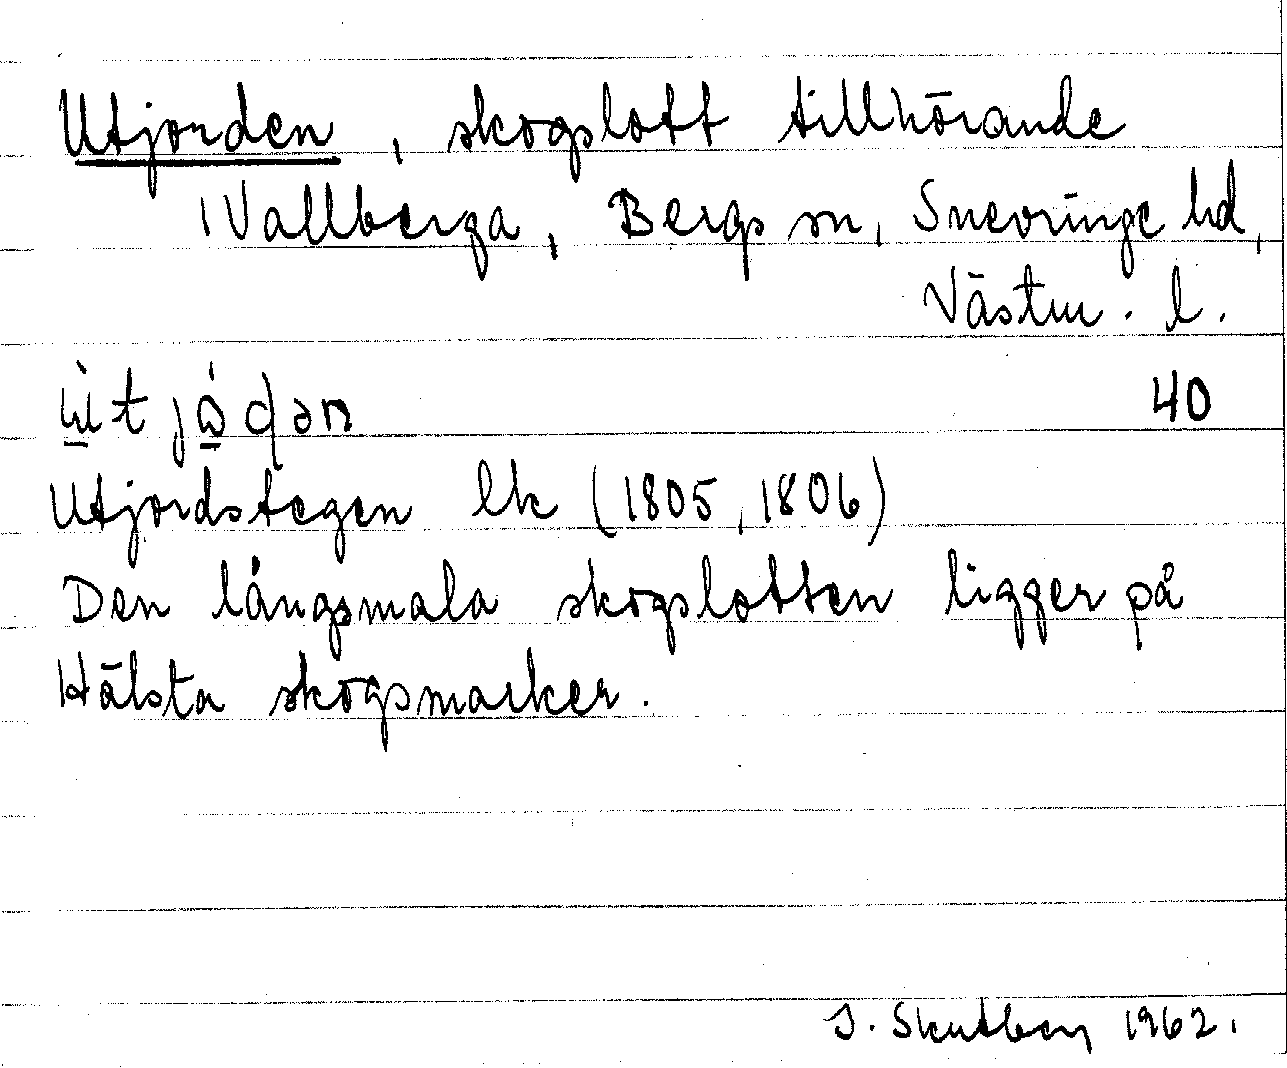 Utjorden, skogslott tillhörande
Vallberga, Bergs sn, Snevringe hd,
Västm. l.
ùtjó̱ḍən 40
Utjordstegen lk (1805, 1806)
Den långsmala skogslotten ligger på
Hälsta skogsmarker.
J. Skutberg 1962.